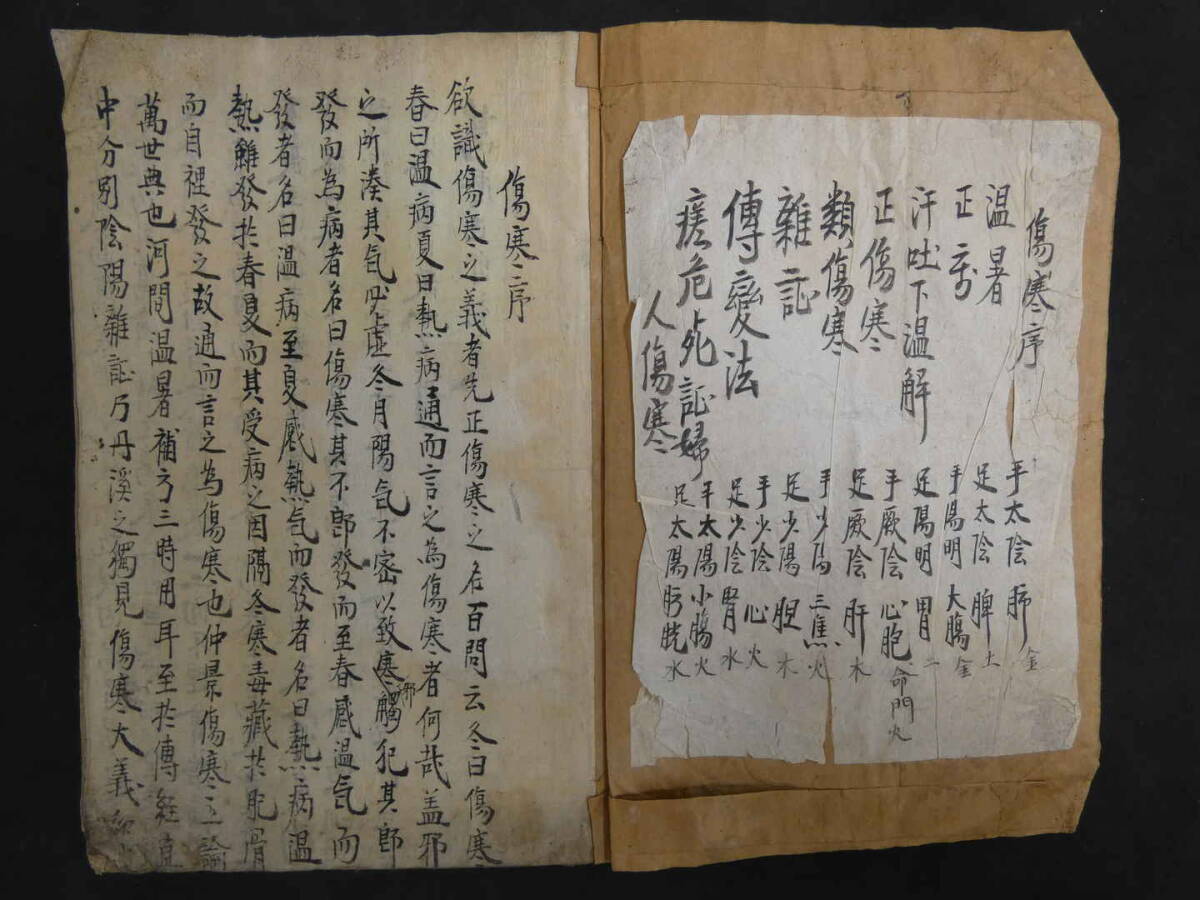 傷寒序
温暑
正
汗吐下温解
正傷寒
類傷寒
雜証
傳變法
瘥危死証婦
人傷寒
手太陰 肺 金
足太陰 脾 土
手陽明 大腸 金
足陽明 胃 土
手厥陰 心胞 命門火
足厥陰 肝 木
手少陽 三焦 火
足少陽 胆 木
手少陰 心 火
足少陰 腎 水
手太陽 小腸 火
足太陽 膀胱 水
傷寒序
欲識傷寒之義者先正傷寒之名百問云冬曰傷寒
春曰温病夏曰熱病通而言之為傷寒者何哉盖邪
之所湊其氣必虚冬月陽气不密以致寒邪觸犯其即
發而為病者名曰傷寒其不即發而至春感温气而
發者名曰温病至夏感熱气而發者名曰熱病温
熱雖發於春夏而其受病之因隔冬寒毒藏於肌骨
而自裡發之故通而言之為傷寒也仲景傷寒之論
萬世典也河間温暑補方三時用耳至於傳経直
中分別陰陽雜証乃丹溪之獨見傷寒大義